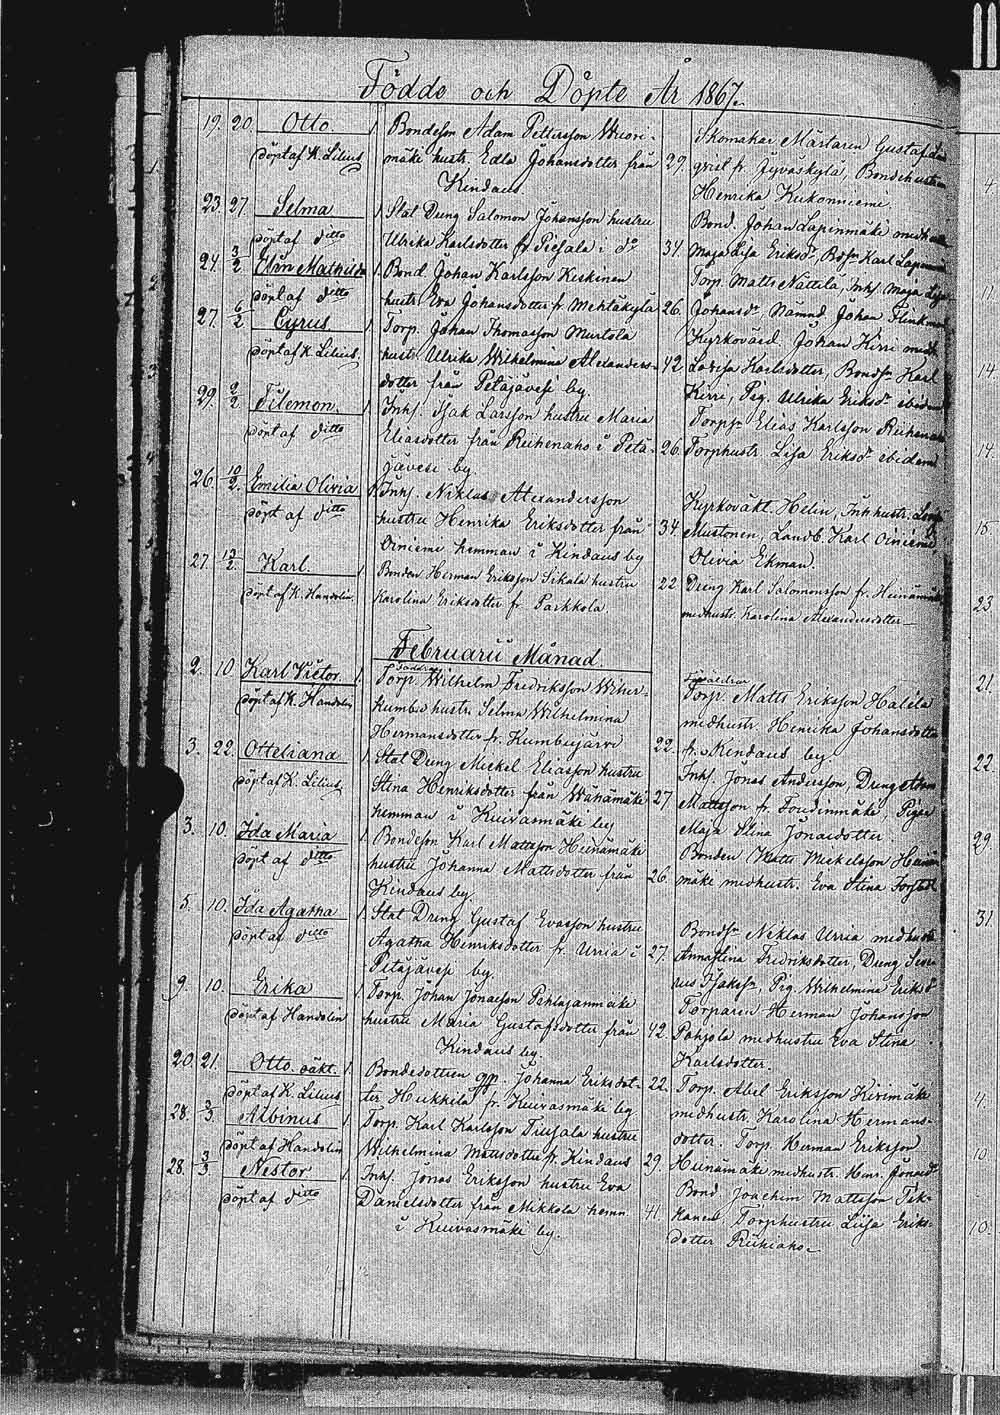 Födde och Döpte År 1867.
19. 20. Otto. 1 Bondeson Adam Pettersson Wuori- Skomakar Mästaren Gustaf
döpt af K. Lilius mäki hustr. Edla Johansdotter från 29. qvist fr. Jyväskylä, Bondehustrun
Kindaus Henrika Kukonniemi.
23. 27. Selma 1 Stat Dreng Salomon Johansson hustru Bond. Johan Lapinmäki medh
döpt af ditto Ulrika Karlsdotter fr Piesala i do 34. Maja Lisa Eriksdr, Bdsn Karl
24. 3/2 Elin Mathilda 1. Bond Johan Karlsson Keskinen Torp. Matts Nättilä, Inhs Maja Lisa
döpt af ditto hustr. Eva Johansdotter fr. Mehtäkylä 26. Johansdr Nämnd Johan
27. 6/2 Cyrus 1 Torp. Johan Thomasson Murtola Kyrkovärd Johan Kirri medh
döpt af K. Lilius. hustr. Ulrika Wilhelmina Alexanders- 42 Lovisa Karlsdotter, Bondsn Karl
dotter från Petäjävesi by. Kirri, Pig. Ulrika Eriksdr ibidem
29. 9/2. Filemon. 1. Inhs. Isak Larsson hustru Maria Torpsn Elias Karlsson
döpt af ditto Eliasdotter från Riihenaho i Petä- 26. Torphustr. Lisa Eriksdr ibidem
jävesi by.
26. 10/2. Emilia Olivia 1. Inhs. Niklas Alexandersson Kyrkoväkt. Helin, Inhhustr.
döpt af ditto hustru Henrika Eriksdotter från 34. Mustonen, Landb Karl Oiniemi
Oiniemi hemman i Kindaus by Olivia Ekman.
27. 12/2. Karl. 1 Bonden Herman Eriksson Sikala hustru 22 Dreng Karl Salomonsson fr. Heinämäki
döpt af K. Handolin. Karolina Eriksdotter fr. Parkkola medhustr. Karolina Alexandersdotter
Februarii Månad.
2. 10 Karl Victor. 1. Torp. Wilhelm Fredriksson Wiher- Torp. Matts Eriksson Halela
döpt af K. Handolin kumbu hustr. Selma Wilhelmina medhustr. Henrika Johansdotter
Hermansdotter fr. Kumbujärvi 22. fr. Kindaus by.
3. 22. Otteliana 1 Stat Dreng Mickel Eliasson hustru Inhs. Jonas Andersson, Dreng
döpt af K. Lilius Stina Henriksdotter från Wähämäki 27 Mattsson fr. Soudinmäki, Pigan
hemman i Kuivasmäki by Maja Stina Jonasdotter.
3. 10. Ida Maria 1 Bondeson Karl Mattsson Heinämäki Bonden Matts Mickelsson
döpt af ditto hustru Johanna Mattsdotter från 26. mäki medhustr. Eva Stina
Kindaus by.
5. 10. Ida Agatha 1. Stat Dreng Gustaf Evasson hustru Bondsn Niklas Urria medhustr
döpt af ditto Agatha Henriksdotter fr. Urria i 27. Anna Stina Fredriksdotter, Dreng
Petäjävesi by. Isaksn, Pig. Wilhelmina Eriksdr
9. 10. Erika 1 Torp. Johan Jonasson Pehlajanmäki Torparen Herman Johansson
döpt af Handolin hustru Maria Gustafsdotter från 42. Pohjola medhustru Eva Stina
Kindaus by. Karlsdotter.
20. 21. Otto. oäkt. 1 Bondedottren Johanna Eriksdot- 22. Torp. Abel Eriksson Kivimäki
döpt af K. Lilius ter Heikkilä fr. Kuivasmäki by medhustr. Karolina Hermans-
28. 3/3 Albinus 1 Torp. Karl Karlsson Tiusala hustru dotter. Torp. Herman Eriksson
döpt af Handolin Wilhelmina Mattsdotter fr. Kindaus 29. Heinämäki medhustr. Henr. Jonasd
28. 3/3 Nestor 1 Inhs. Jonas Eriksson hustru Eva Bond Joachim Mattsson Tik-
döpt af ditto Danielsdotter från Mikkola hemn. 41. kanen, Torphustru Lisa Eriks-
i Kuivasmäki by. dotter Riihiaho